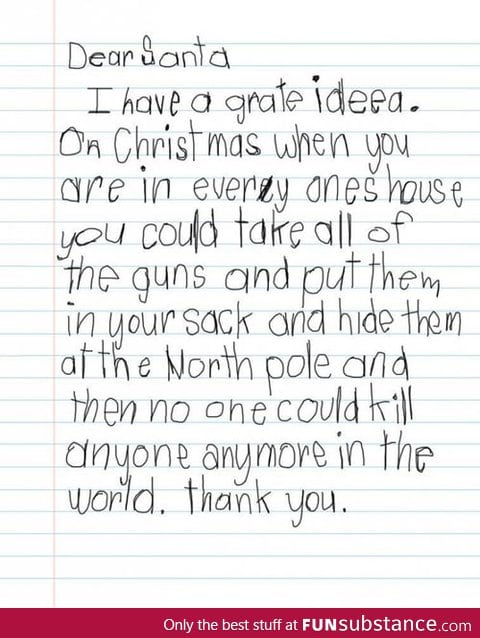 Dear Santa
I have a grate ideea.
On Christmas when you
are in everey ones house
you could take all of
the guns and put them
in your sack and hide them
at the North pole and
then no one could kill
anyone anymore in the
world. thank you.
Only the best stuff at FUNsubstance.com